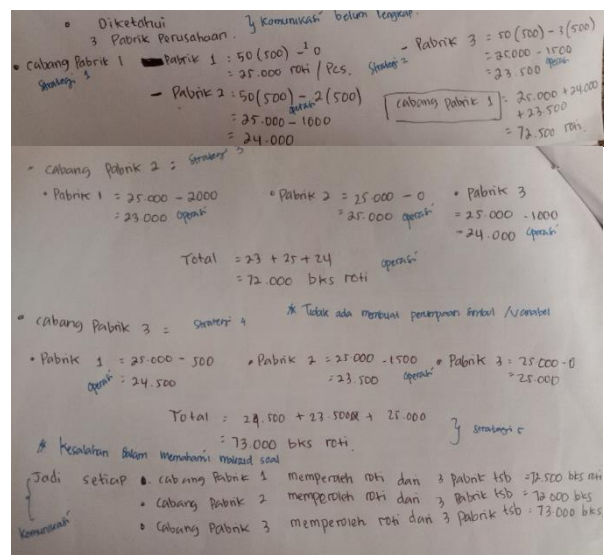 • Diketahui } Komunikasi belum lengkap.
3 Pabrik Perusahaan.
• Cabang Pabrik 1
Strategi 1
Pabrik 1 : 50 (500) - 0
= 25.000 roti / Pcs.
- Pabrik 2 : 50 (500) - 2 (500)
operasi
= 25.000 - 1000
= 24.000
- Pabrik 3 = 50 (500) - 3 (500)
Strategi 2
= 25000 - 1500
= 23.500 operasi
Cabang Pabrik 1 = 25.000 + 24.000
+ 23.500
= 72.500 roti.
• Cabang Pabrik 2 = Strategi 3
• Pabrik 1 = 25.000 - 2000
= 23.000 operasi
• Pabrik 2 = 25.000 - 0
= 25.000 operasi
• Pabrik 3
= 25.000 - 1000
= 24.000 operasi
Total = 23 + 25 + 24 operasi
= 72.000 bks roti
* Tidak ada membuat permisalan simbol / variabel
• Cabang Pabrik 3 = Strategi 4
• Pabrik 1 = 25.000 - 500
operasi = 24.500
• Pabrik 2 = 25.000 - 1500
= 23.500 operasi
• Pabrik 3 = 25.000 - 0
= 25.000
Total = 24.500 + 23.500 + 25.000
= 73.000 bks roti. } Strategi 5
* Kesalahan dalam memahami maksud soal
Jadi setiap • Cabang Pabrik 1 memperoleh roti dari 3 Pabrik tsb = 72.500 bks roti
• Cabang Pabrik 2 memperoleh roti dari 3 Pabrik tsb = 72 000 bks
Komunikasi
• Cabang Pabrik 3 memperoleh roti dari 3 pabrik tsb = 73.000 bks